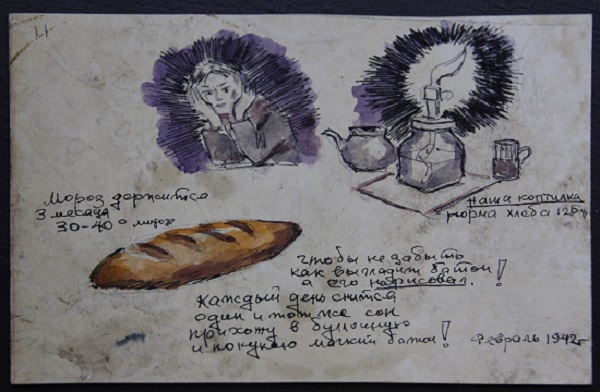 Мороз держится
3 месяца
30-40° мороз
наша коптилка
норма хлеба 125 гр
чтобы не забыть
как выглядит батон
я его нарисовал.!
каждый день снится
один и тот же сон
прихожу в булочную
и покупаю мягкий батон!
Февраль 1942г